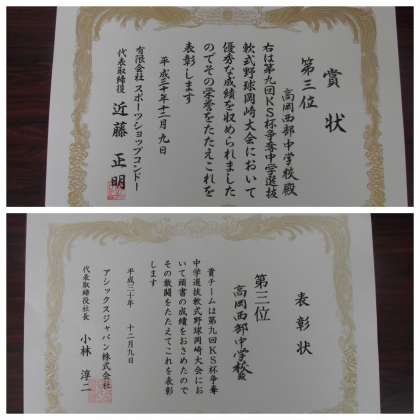 賞状
第三位
高岡西部中学校殿
右は第九回KS杯争奪中学選抜
軟式野球岡崎大会において
優秀な成績を収められました
のでその栄誉をたたえこれを
表彰します
平成三十年十二月九日
有限会社 スポーツショップコンドー
代表取締役 近藤 正明
表彰状
第三位
高岡西部中学校
貴チームは第九回KS杯争奪
中学選抜軟式野球岡崎大会にお
いて頭書の成績をおさめたので
その敢闘をたたえてこれを表彰
します
平成三十年 十二月九日
アシックスジャパン株式会社
代表取締役社長 小林 淳二